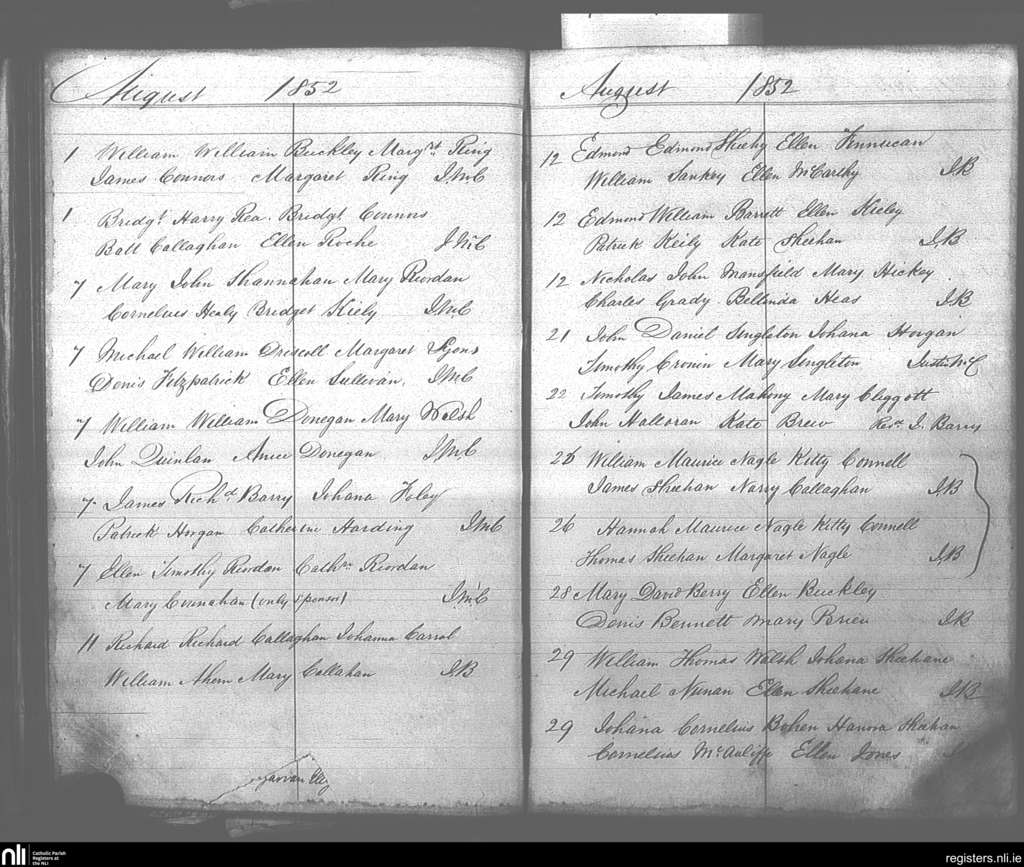 August 1852
1 William William Buckley Margt Ring
James Connors Margaret Ring J.McC
1 Bridgt Harry Rea. Bridgt Connors
Batt Callaghan Ellen Roche J McC
7 Mary John Shannahan Mary Riordan
Cornelius Healy Bridget Kiely J.McC
7 Michael William Driscoll Margaret Lyons
Denis Fitzpatrick Ellen Sullivan. J.McC
7 William William Donegan Mary Walsh
John Quinlan Donegan J.McC
7 James Richd Barry Johana Foley
Patrick Horgan Catherine Harding J.McC
7 Ellen Timothy Riordan Cathne Riordan
Mary (only sponsor) J.McC
11 Richard Richard Callaghan Johanna Carrol
William Ahern Mary Callahan J.B
August 1852
12 Edmond Edmond Sheehy Ellen
William Sankey Ellen McCarthy J.B
12 Edmond William Barrett Ellen Kieley
Patrick Keily Kate Sheehan J.B
12 Nicholas John Mansfield Mary Hickey
Charles Grady Bellinda Heas J.B
21 John Daniel Singleton Johana Horgan
Timothy Cronin Mary Singleton Justin McC
22 Timothy James Mahony Mary Cliggott
John Halloran Kate Brew Revd J. Barry
26 William Maurice Nagle Kitty Connell
James Sheehan Norry Callaghan J.B
26 Hannah Maurice Nagle Kitty Connell
Thomas Sheehan Margaret Nagle J.B
28 Mary David Berry Ellen Buckley
Denis Bennett Mary Brien J.B
29 William Thomas Walsh Johana Sheehane
Michael Nunan Ellen Sheehane J.B
29 Johana Cornelius Hanora Sheehan
Cornelius McAuliffe Ellen Jones
nli
Catholic Parish
Registers at
the NLI
registers.nli.ie